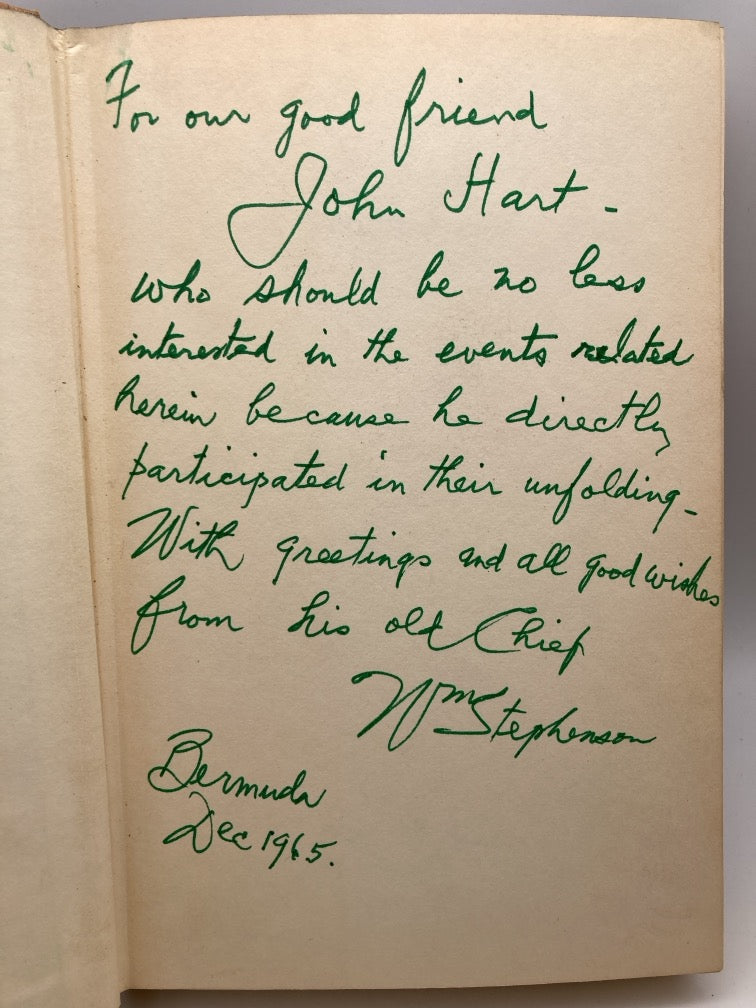 For our good friend
John Hart -
who should be no less
interested in the events related
herein because he directly
participated in their unfolding -
With greetings and all good wishes
from his old Chief
Wm Stephenson
Bermuda
Dec 1965.